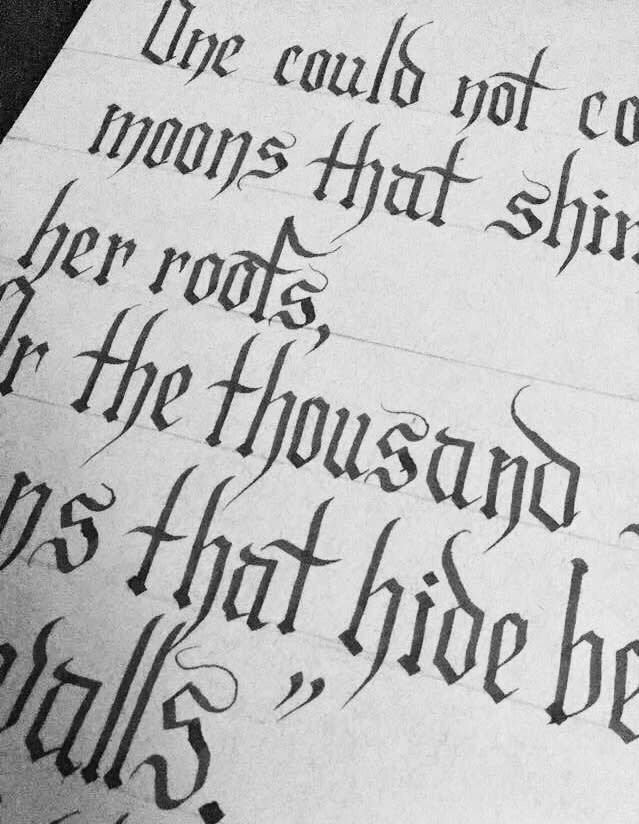 One could not co
moons that shin
her roofs,
Or the thousand
ns that hide be
walls.”